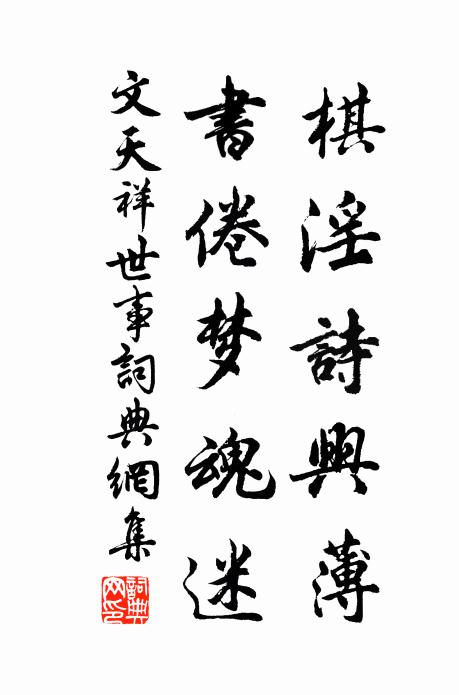 棋淫詩興薄
書倦梦魂迷
文天祥世事詞典網集
詞典網印